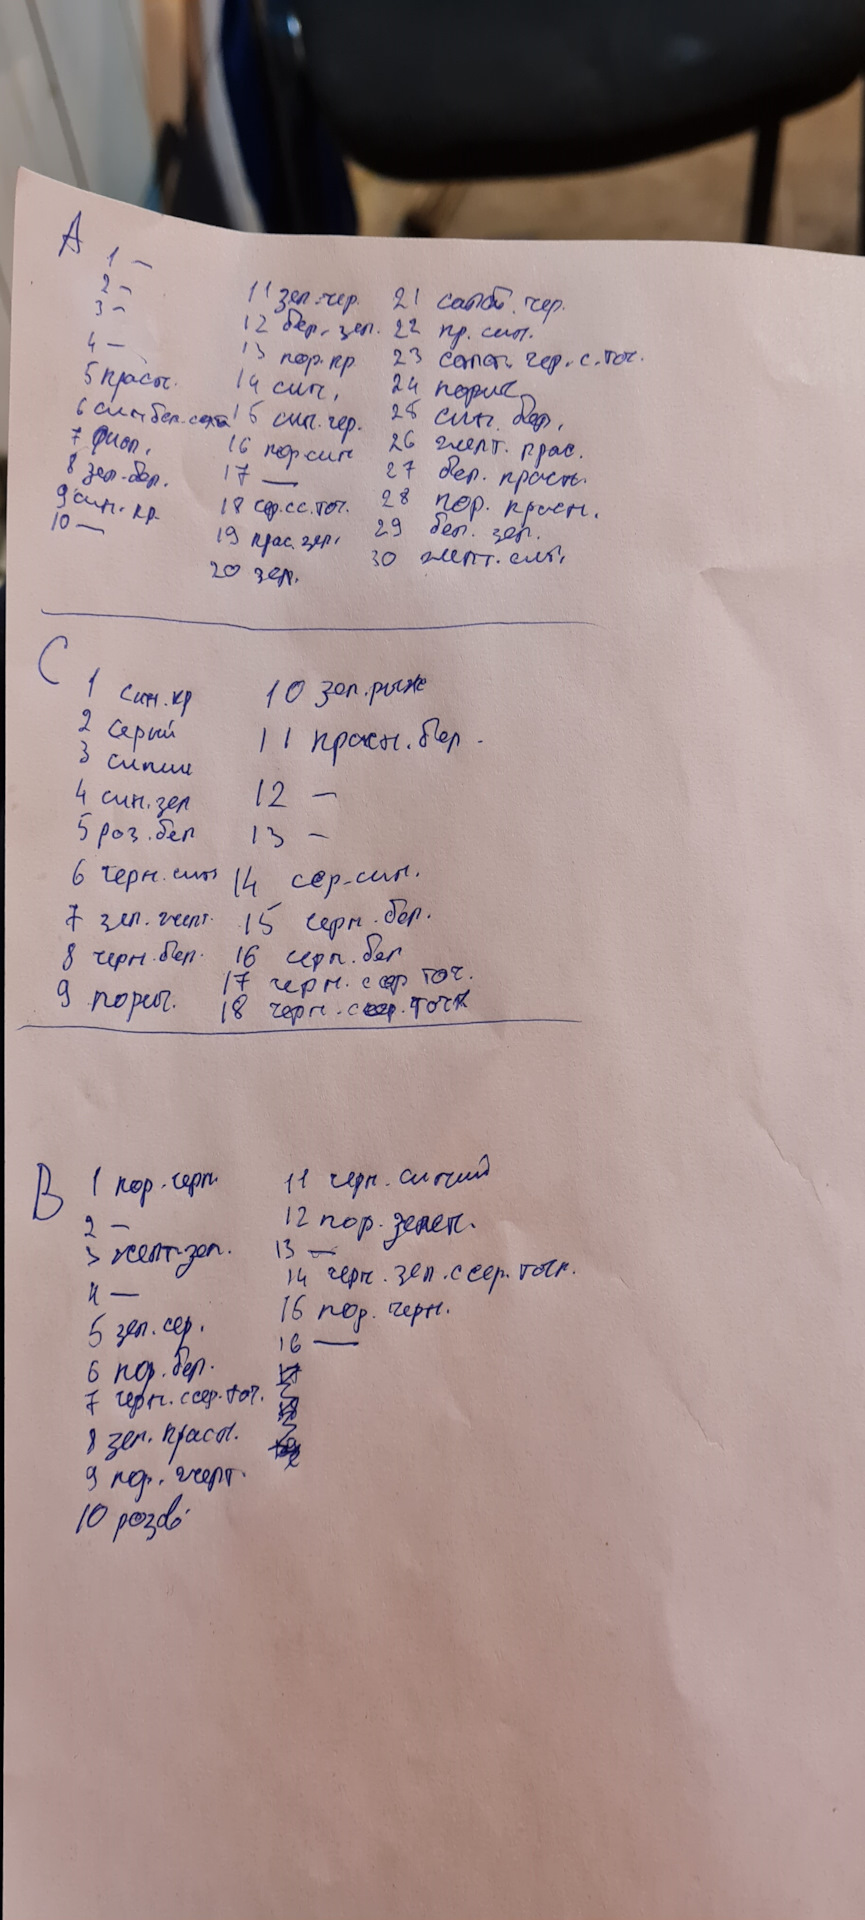 A
1 —
2 —
3 —
4 —
5 красн.
6 син.бел.
7 фиол.
8 зел.-бел.
9 син. кр.
10 —
11 зел.чер.
12 бел. зел.
13 пор.кр
14 син.
15 син.чер.
16 пор.син
17 —
18 сер.сс.точ.
19 крас.зел.
20 зел.
21 салат. чер.
22 кр. син.
23 салат. чер. с. точ.
24 порич
25 син. бел.
26 желт. крас.
27 бел. красн.
28 пор. красн.
29 бел. зел.
30 желт. син.
C
1 син.кр
2 серый
3 синий
4 син.зел
5 роз.бел
6 черн.син
7 зел.желт.
8 черн.бел.
9 корич.
10 зел.рыже
11 красн.бел.
12 —
13 —
14 сер-син.
15 черн.бел.
16 серн.бел
17 черн. с сер точ.
18 черн. с сер. точк
B
1 кор.черн
2 —
3 желт-зел.
4 —
5 зел.сер.
6 кор.бел.
7 черн.ссер.точ.
8 зел.красн.
9 кор.желт.
10 розов
11 черн.синий
12 кор.зелен.
13 —
14 черн.зел.ссер.точк.
16 кор.черн.
16 —